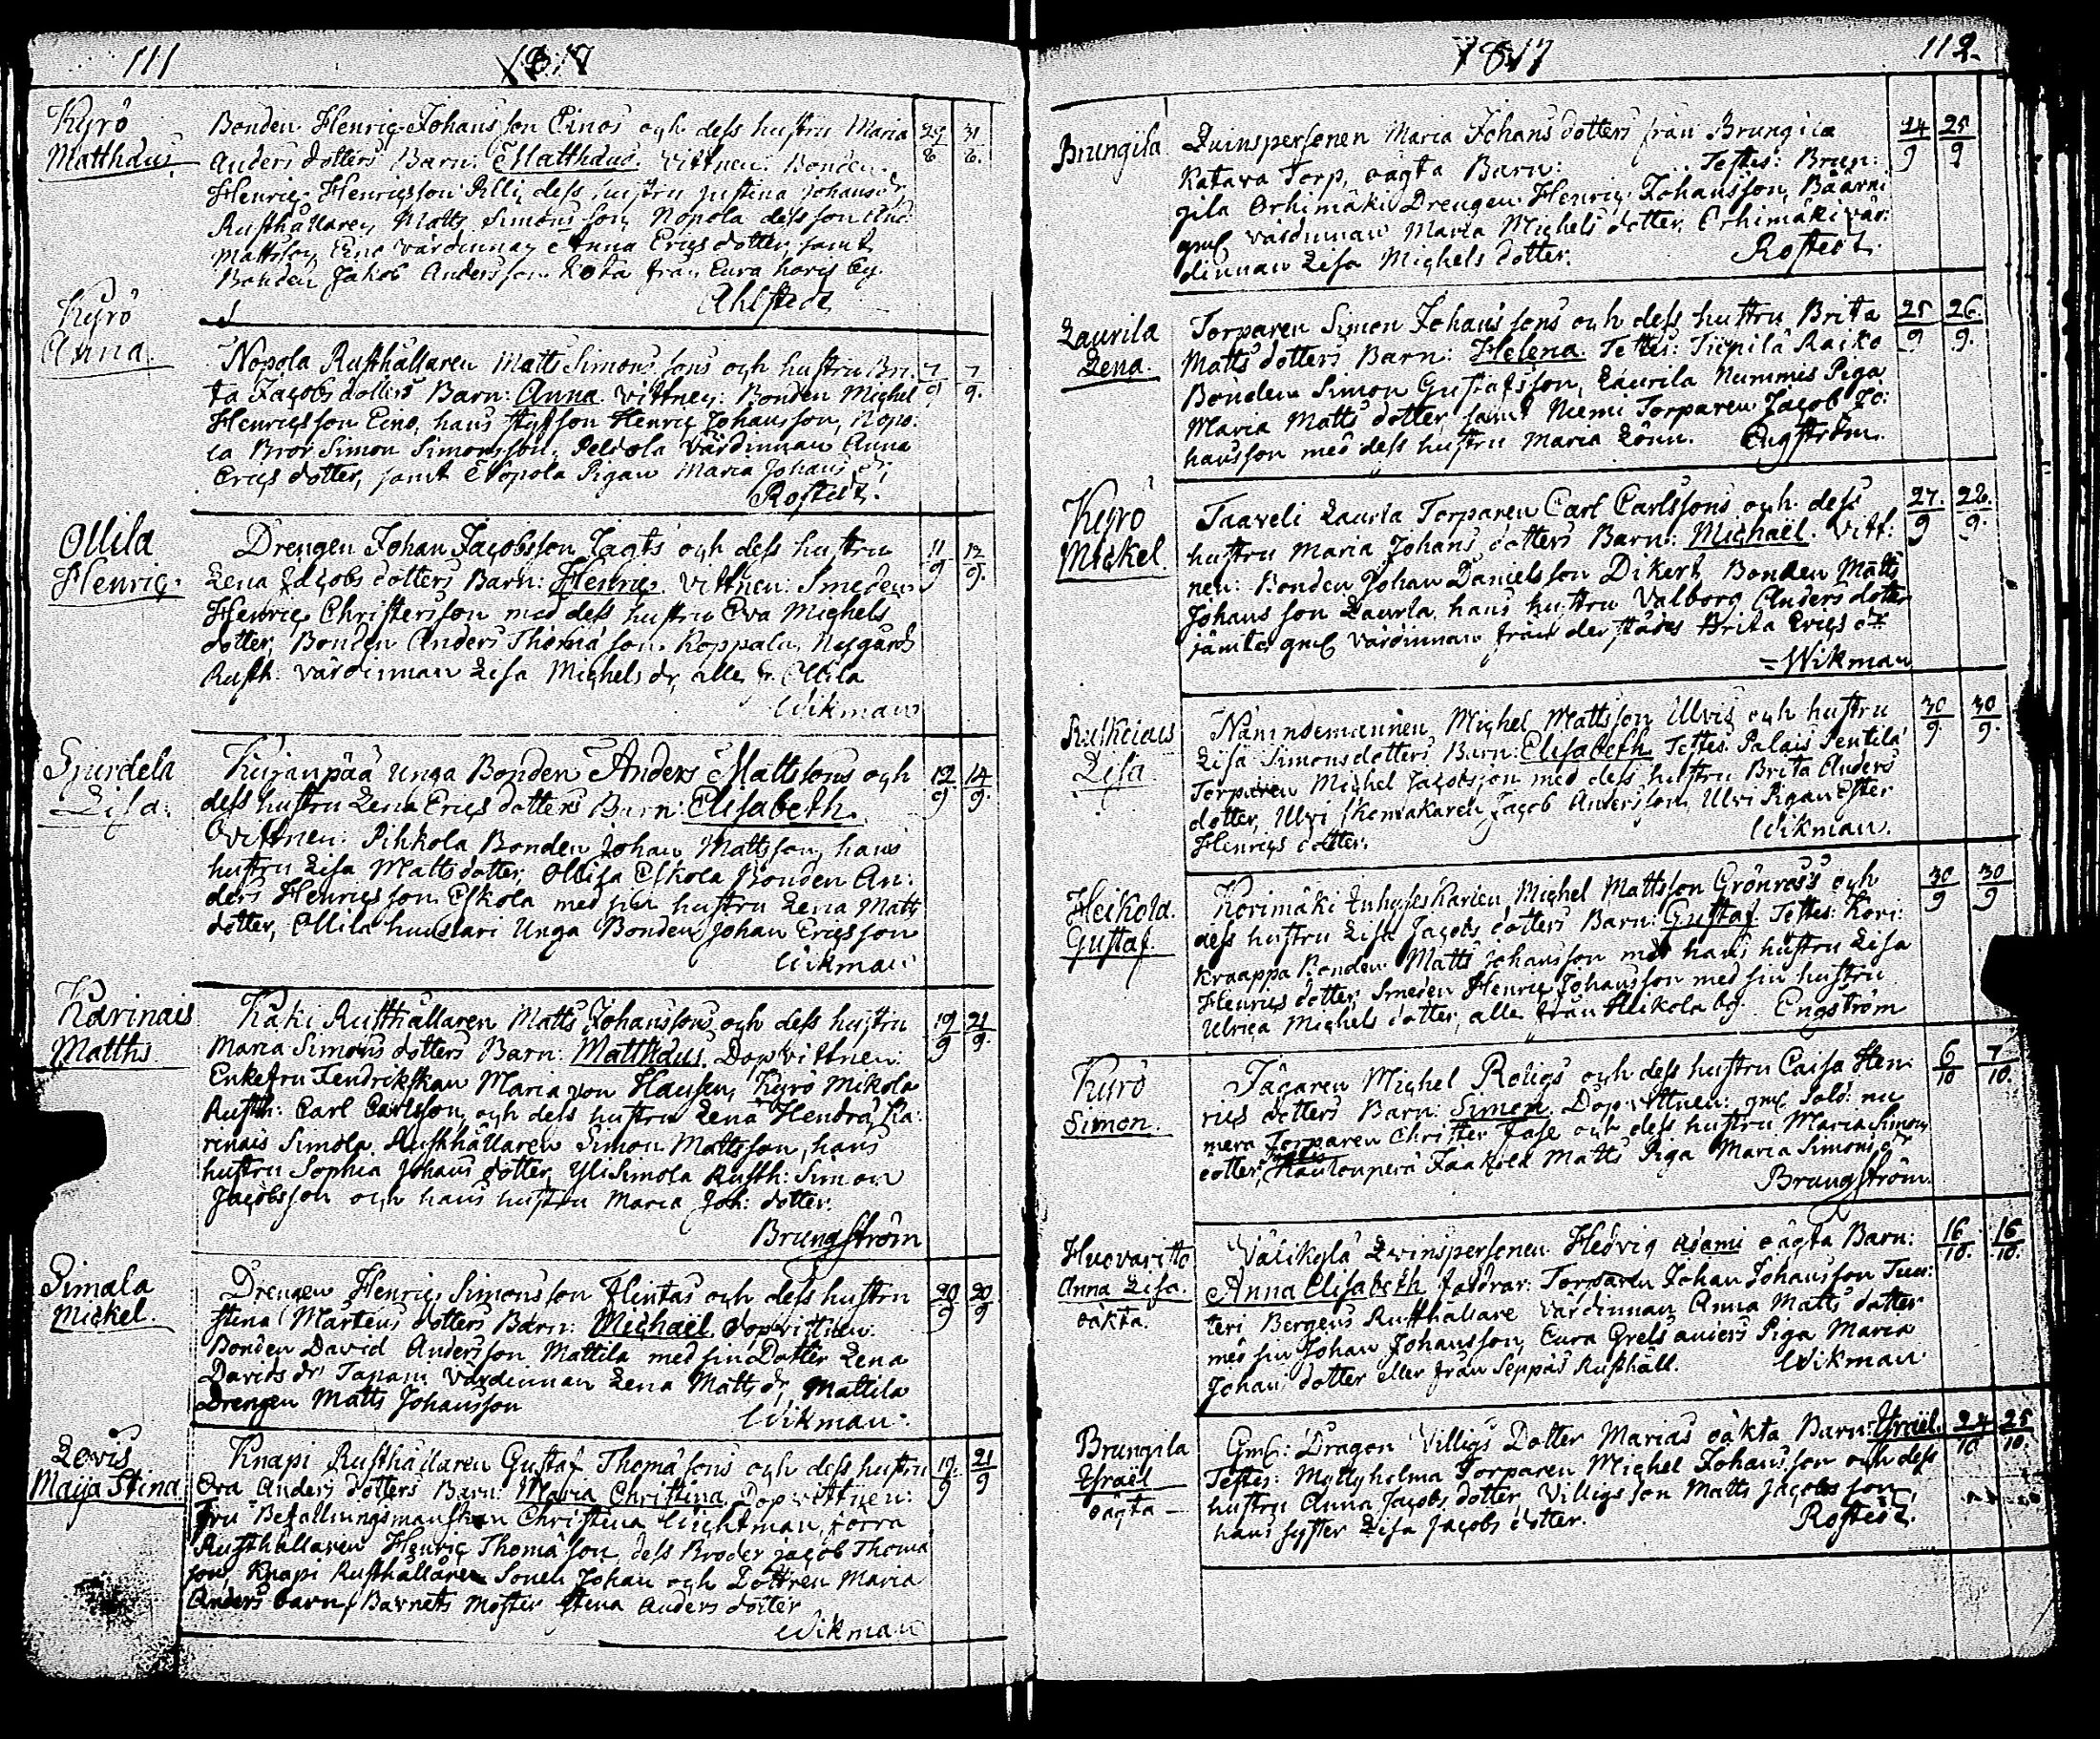 111
1817
Kyrö
Matthæus
Bonden Henric Johansson Einos och dess hustru Maria
Anders dotters Barn: Matthæus. Vittnen: Bonden
Henric Henricsson Pilli, dess hustru Justina Johans dr,
Rusthållaren Matts Simonsson Nopola dess son And:
Mattsson, Eino Värdinnan Anna Erics dotter, samt
Bonden Jakob Andersson Kota från Eura haris by.
Ahlstedt
31
8.
Kyrö
Anna
Nopola Rusthållaren Matts Simonssons och hustru Bri-
ta Jacobs dotters Barn: Anna. Vittnen: Bonden Michel
Henricsson Eino, hans styfson Henric Johansson, Nopo:
la Bror Simon Simonsson, Peldola Värdinnan Anna
Erics dotter, samt Nopola Pigan Maria Johans dr,
Rostedt.
7
9
7
9.
Ollila
Henric
Drengen Johan Jacobsson Jagts och dess hustru
Lena Jacobs dotters Barn: Henric. Vittnen: Smeden
Henric Christersson med dess hustru Eva Michels
dotter, Bonden Anders Thomasson Koppala, Nygårds
Rusth. Värdinnan Lisa Michels dr, alle fr. Ollila
Wikman
11
9
12
9.
Lisa.
Kujanpää Unga Bonden Anders Mattssons och
dess hustru Lena Erics dotters Barn: Elisabeth.
Vittnen: Pihkola Bonden Johan Mattsson, hans
hustru Lisa Matts dotter, Ollila Eskola Bonden An:
ders Henricsson Eskola med sin hustru Lena Matts
dotter, Ollila Unga Bonden Johan Ericsson
Wikman
12
9
14
9.
Karinais
Matths
Käki Rusthållaren Matts Johanssons och dess hustru
Maria Simons dotters Barn: Matthæus. Dopvittnen:
Enkefru Fendrikskan Maria von Hausen, Kyrö Mikola
Rusth: Carl Carlsson, och dess hustru Lena Hendrs, Ka:
rinais Simola Rusthållaren Simon Mattsson, hans
hustru Sophia Johans dotter, Yli Simola Rusth: Simon
Jacobsson och hans hustru Maria Joh: dotter.
Brungström
19
9
21
9.
Pimala
Mickel.
Drengen Henric Simonsson Flintas och dess hustru
Stina Mårtens dotters Barn: Michaël. Dopvittnen:
Bonden David Andersson Mattila med sin Dotter Lena
Davids dr Tapani Värdinnan Lena Matts dr, Mattila
Drengen Matts Johansson
Wikman.
20
9
20
9
Levis
Maija Stina
Knapi Rusthållaren Gustaf Thomæsons och dess hustru
Eva Anders dotters Barn: Maria Christina. Dopvittnen:
Fru Befallningsmanskan Christina Wichtman, Jorra
Rusthållaren Henric Thomæson, dess Broder Jacob Thomæ
son, Knapi Rusthållaren Sonen Johan och Dottren Maria
Anders barn, Barnets Moster Stina Anders dotter
Wikman
19
9
21
9
1817
112.
Brungila
Qvinspersonen Maria Johans dotters från Brungila
Katava Torp, oägta Barn: Testes: Brun:
gila Orhimäki Drengen Henric Johansson, Bäärni
gml. värdinnan Maria Michels dotter, Orhimäki vär:
dinnan Lisa Michels dotter.
Rostedt.
24
9
25
9
Laurila
Lena.
Torparen Simon Johanssons och dess hustru Brita
Matts dotters Barn: Helena. Testes: Tiipilä Raiko
Bonden Simon Gustafsson, Laurila Nummis Piga
Maria Matts dotter, samt Niemi Torparen Jacob Jo:
hansson med dess hustru Maria Lönn. Engström.
25
9
26.
9.
Kyrö
Mickel.
Taaveli Laurla Torparen Carl Carlssons och dess
hustru Maria Johans dotters Barn: Michaël. Vitt:
nen: Bonden Johan Danielsson Dikert, Bonden Matts
Johansson Laurla, hans hustru Valborg Anders dotter
jämte gml. värdinnan från derstädes Brita Erics dr
Wikman
27.
9
28.
9.
Lisa
Nämndemannen Michel Mattsson Ulvis och hustru
Lisa Simonsdotters Barn: Elisabeth. Testes: Palais Pentilä
Torparen Michel Jacobsson med dess hustru Brita Anders
dotter, Ulvi Skomakaren Jacob Andersson, Ulvi Pigan Ester
Henrics dotter.
Wikman.
30
9.
30
9.
Heikola.
Gustaf
Korimäki Inhyseskarlen Michel Mattsson Grönroos's och
dess hustru Lisa Jacobs dotters Barn: Gustaf. Testes: Kori:
kraappa Bonden Matts Johansson med hans hustru Lisa
Henrics dotter, Smeden Henric Johansson med sin hustru
Ulrica Michels dotter, alle från Heikola by. Engström
30
9
30
9
Kyrö
Simon.
Jägaren Michel Roligs och dess hustru Caisa Hen
rics dotters Barn: Simon. Dopvittnen: gml. Sold: nu
mera Torparen Christer Fase och dess hustru Maria Simons
dotter, Jaakola Matts Piga Maria Simons dr
Brungström.
6
10
7
10.
Anna Lisa.
oäkta.
Välikylä Qvinspersonen Hedvig Adami oägta Barn:
Anna Elisabeth. faddrar: Torparen Johan Johansson Tuu:
teri Bergens Rusthållare Värdinnan Anna Matts dotter
med sin Johan Johansson, Eura Grels aniers Piga Maria
Johans dotter eller från Seppäs Rusthåll. Wikman
16
10.
16
10.
Brungila
Israël
oägta
Gml: Dragon Villigs Dotter Marias oäkta Barn: Israël.
Testes: Myllyholma Torparen Michel Johansson och dess
hustru Anna Jacobs dotter, Villigs son Matts Jacobsson,
hans syster Lisa Jacobs dotter. Rostedt.
24
10
25
10.